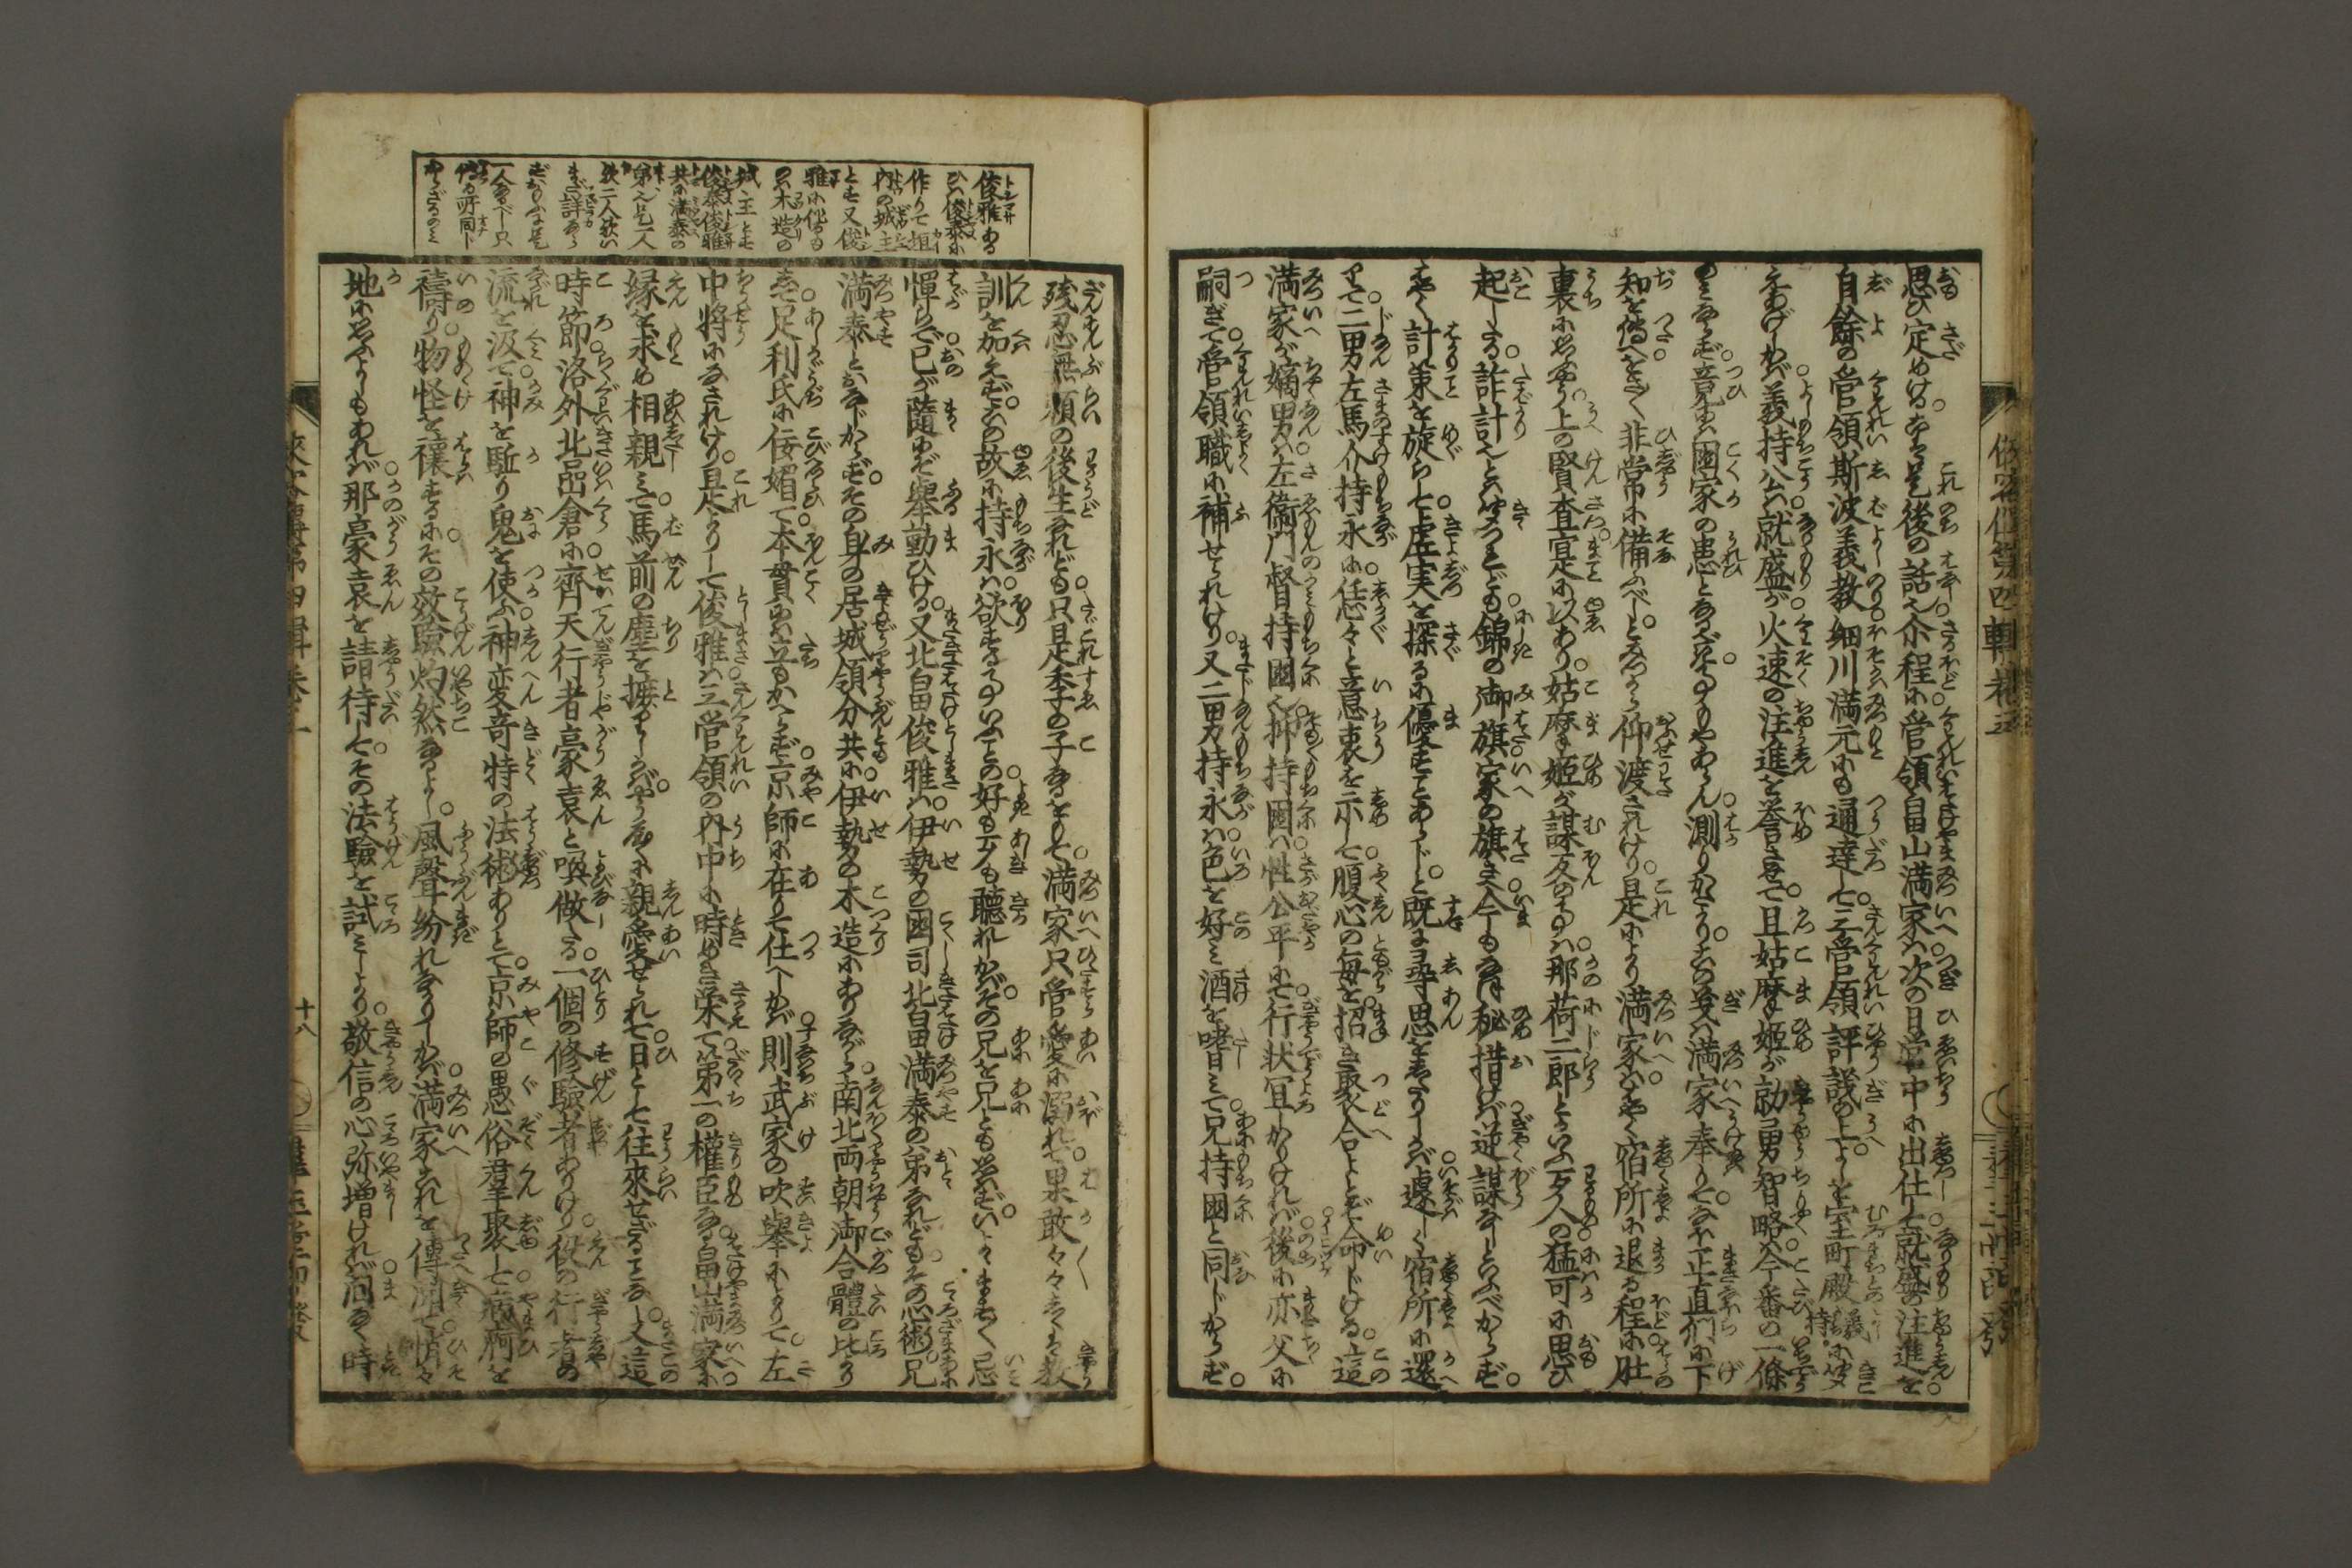 思ひ定めける。是後の話也。介程に管領畠山満家は次の日営中に出仕して就盛の注進を
自餘の管領斯波義教細川満元にも通達して三管領評議の上よしを室町殿義持に聞
えあげしかば義持公は就盛が火速の注進を誉させて且姑摩姫が勍勇智略今番の一條
のみならず竟には國家の患とならざる事もやあらん測りかたかり。この義は満家奉りてなほ正直們に下
知を傳へをさ〳〵非常に備ふべしとみづから仰渡されけり。是により満家ははやく宿所に退る程に肚
裏に思ふやう上の賢査寔に以あり。姑摩姫が謀反の事は那荷二郎といふ歹人の猛可に思ひ
起したる詐計也とは聞つれども錦の御旗家の旗さへ今もなほ秘措けば逆謀なしといふべからず。
はやく計策を旋らして虚実を探るに優すことあらじと既に尋思をしたりしかば遽しく宿所に還
りて二男左馬介持永に恁々と意衷を示して腹心の毎を招き聚合よとぞ命じける。這
満家が嫡男は左衛門督持國也。抑持國は性公平にて行状宜かりければ後に亦父に
嗣ぎて管領職に補せられけり。又二男持永は色を好み酒を嗜みて兄持國と同じからず。
俊雅ある
ひは俊泰に
作りて垣
内の城主
とす又俊
雅に作るも
の木造の
城主とす
俊泰俊雅
共に満泰の
弟也是一人
歟二人歟い
まだ詳なら
ずおもふに是
一人なるべし只
傳る所同じ
からざるのみ
残忍無頼の後生なれども只是季の子なるをもて満家只管愛に溺れて果敢々々しくは教
訓を加えず。この故に持永は欲する事いふことの好も歹も聴れしかばその兄を兄とも思はずいよ〳〵ますます忌
憚らで己が隨まに挙動ひける。又北畠俊雅は伊勢の國司北畠満泰の弟なれどもその心術兄
満泰とおなじからず。その身の居城領分共に伊勢の木造にありながら南北両朝御合體の比より
して足利氏に佞媚て本貫には立もかへらず京師に在りて仕へしかば則武家の吹挙によりて左
中将になされけり。是よりして俊雅は三管領の内中に時めき栄て第一の權臣なる畠山満家に
縁を求め相親みて馬前の塵を掃ひしかばやうやくに親愛せられて日として往來せざることなし。又這
時節洛外北嵒倉に齊天行者豪袁と喚做たる一個の修驗者ありけり。役の行者の
流を汲て神を駈り鬼を使ふ神変奇特の法術ありとて京師の愚俗群聚して病痾を
禱り物怪を禳するにその效驗灼然なるよし。風聲紛れなかりしかば満家これを傳聞て悄々
地に思ふよしもあれば那豪袁を請待してその法驗を試みしより敬信の心弥増ければ間なく時
十八